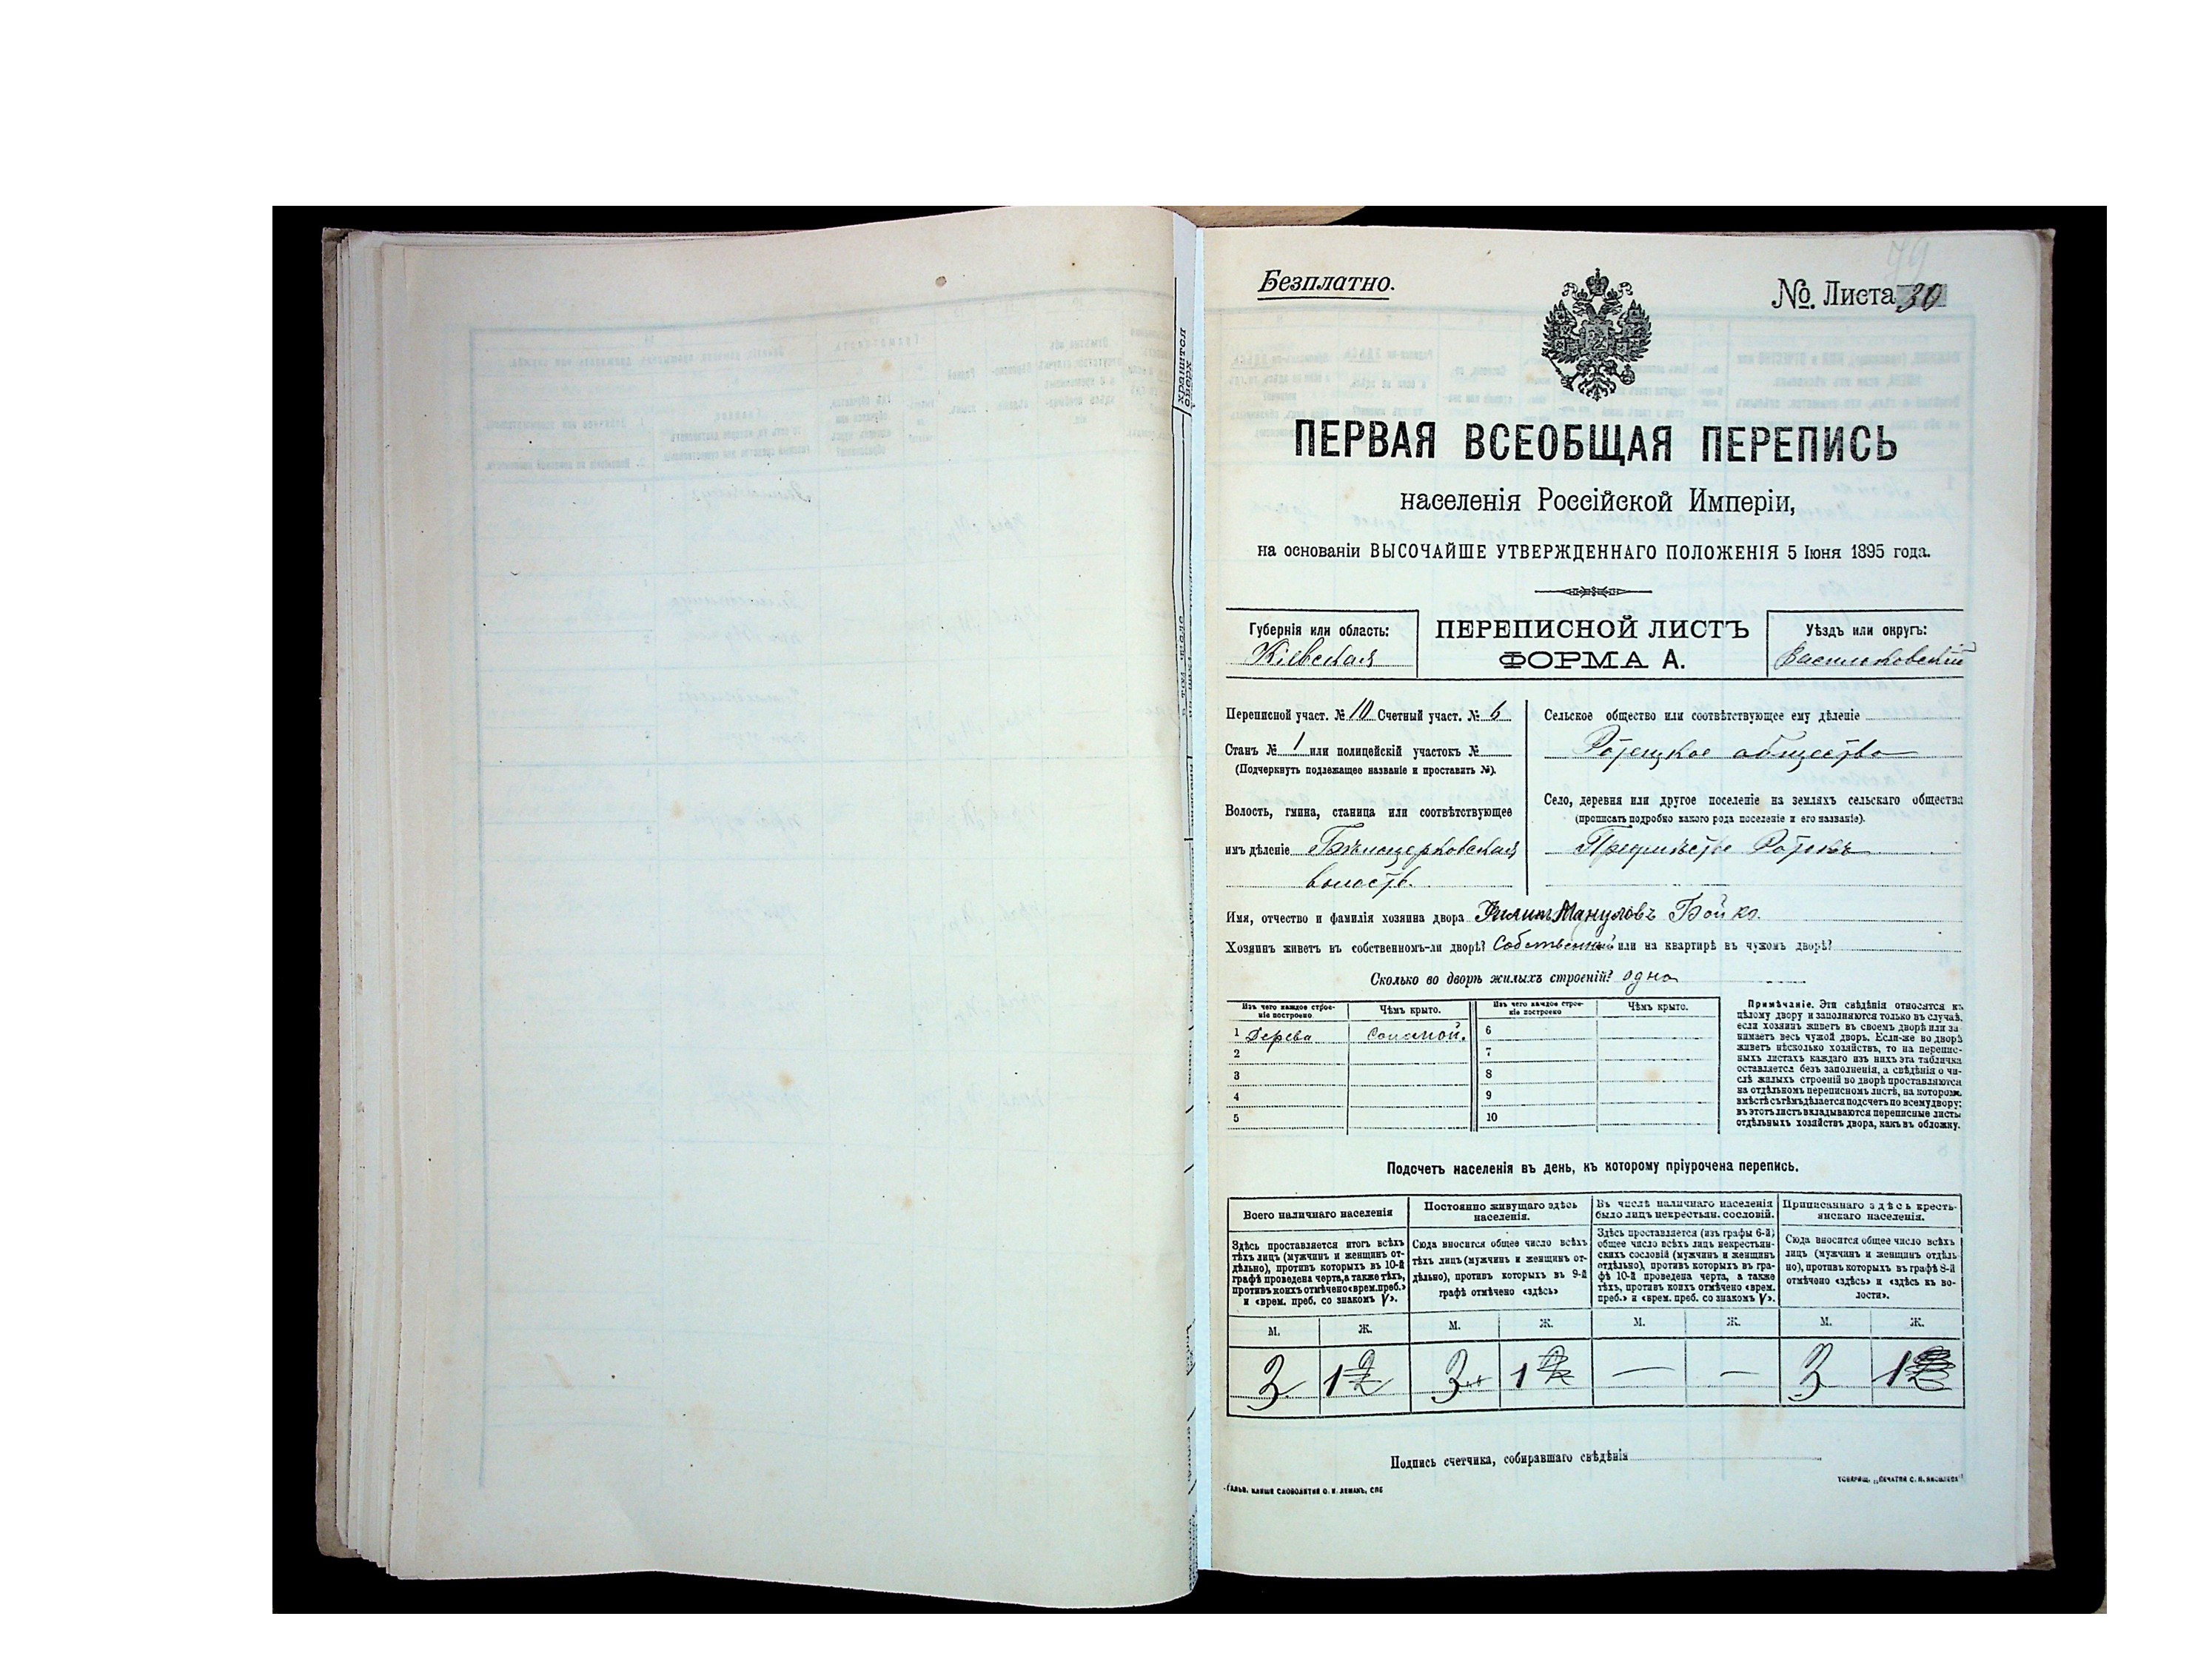 79
Безплатно.
№ Листа 30
ПЕРВАЯ ВСЕОБЩАЯ ПЕРЕПИСЬ
населенія Россійской Имперіи,
на основаніи ВЫСОЧАЙШЕ УТВЕРЖДЕННАГО ПОЛОЖЕНІЯ 5 Іюня 1895 года.
Губернія или область:
Кіевская
ПЕРЕПИСНОЙ ЛИСТЪ
ФОРМА А.
Уѣздъ или округъ:
Васильковскій
Переписной участ. № 10 Счетный участ. № 6
Станъ № 1 или полицейскій участокъ №
(Подчеркнуть подлежащее названіе и проставить №).
Волость, гмина, станица или соотвѣтствующее
имъ дѣленіе Бѣлоцерковская
волость.
Сельское общество или соотвѣтствующее ему дѣленіе
Ротецкое общество
Село, деревня или другое поселеніе на земляхъ сельскаго общества
(прописать подробно какого рода поселеніе и его названіе).
Предмѣстье Ротокъ
Имя, отчество и фамилія хозяина двора Филипъ Мануловъ Бойко.
Хозяинъ живетъ въ собственномъ-ли дворѣ? Собственный или на квартирѣ въ чужомъ дворѣ?
Сколько во дворѣ жилыхъ строеній? одно
Изъ чего каждое строе-
ніе построено
Чѣмъ крыто.
Изъ чего каждое строе-
ніе построено
Чѣмъ крыто.
1 Дерева Соломой. 6
2 7
3 8
4 9
5 10
Примѣчаніе. Эти свѣдѣнія относятся къ
цѣлому двору и заполняются только въ случаѣ,
если хозяинъ живетъ въ своемъ дворѣ или за-
нимаетъ весь чужой дворъ. Если-же во дворѣ
живетъ нѣсколько хозяйствъ, то на перепис-
ныхъ листахъ каждаго изъ нихъ эта табличка
оставляется безъ заполненія, а свѣдѣнія о чи-
слѣ жилыхъ строеній во дворѣ проставляются
на отдѣльномъ переписномъ листѣ, на которомъ
вмѣстѣ съ тѣмъ дѣлается подсчетъ по всему двору;
въ этотъ листъ вкладываются переписные листы
отдѣльныхъ хозяйствъ двора, какъ въ обложку.
Подсчетъ населенія въ день, къ которому пріурочена перепись.
Всего наличнаго населенія
Здѣсь проставляется итогъ всѣхъ
тѣхъ лицъ (мужчинъ и женщинъ от-
дѣльно), противъ которыхъ въ 10-й
графѣ проведена черта, а также тѣхъ,
противъ коихъ отмѣчено «врем. преб.»
и «врем. преб. со знакомъ V».
Постоянно живущаго здѣсь
населенія.
Сюда вносится общее число всѣхъ
тѣхъ лицъ (мужчинъ и женщинъ от-
дѣльно), противъ которыхъ въ 9-й
графѣ отмѣчено «здѣсь»
Въ числѣ наличнаго населенія
было лицъ некрестьян. сословій.
Здѣсь проставляется (изъ графы 6-й)
общее число всѣхъ лицъ некрестьян-
скихъ сословій (мужчинъ и женщинъ
отдѣльно), противъ которыхъ въ гра-
фѣ 10-й проведена черта, а также
тѣхъ, противъ коихъ отмѣчено «врем.
преб.» и «врем. преб. со знакомъ V».
Приписаннаго здѣсь кресть-
янскаго населенія.
Сюда вносится общее число всѣхъ
лицъ (мужчинъ и женщинъ отдѣль-
но), противъ которыхъ въ графѣ 8-й
отмѣчено «здѣсь» и «здѣсь въ во-
лости».
М. Ж. М. Ж. М. Ж. М. Ж.
3 1 2 3 1 — — 3 1
Подпись счетчика, собиравшаго свѣдѣнія
ГАЛЬВ. КЛИШЕ СЛОВОЛИТНИ О. И. ЛЕМАНЪ, СПБ
ТОВАРИЩ. „ПЕЧАТНЯ С. П. ЯКОВЛЕВА"